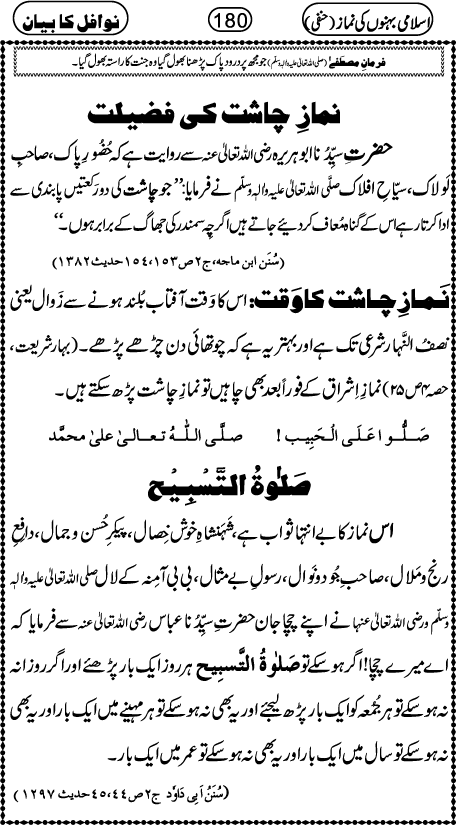 اسلامی بہنوں کی نماز (حنفی) 180 نوافل کا بیان
فرمانِ مصطفٰے (صلی اللہ تعالیٰ علیہ والہٖ وسلّم) جو مجھ پر درودِ پاک پڑھنا بھول گیا وہ جنت کا راستہ بھول گیا۔
نمازِ چاشت کی فضیلت
حضرتِ سیِّدُنا ابوہریرہ رضی اللہ تعالیٰ عنہ سے روایت ہے کہ حُضُورِ پاک، صاحبِ
لَولاک، سیّاحِ افلاک صلَّی اللہ تعالیٰ علیہ والہٖ وسلَّم نے فرمایا: ”جو چاشت کی دو رَکعتیں پابندی سے
ادا کرتا رہے اس کے گناہ مُعاف کردئیے جاتے ہیں اگرچِہ سمندر کی جھاگ کے برابر ہوں۔“
(سُنَن ابن ماجہ، ج٢ ص١٥٣، ١٥٤ حدیث ١٣٨٢)
نَمازِ چاشت کا وَقت: اس کا وَقت آفتاب بُلند ہونے سے زَوال یعنی
نصفُ النَّہار شرعی تک ہے اور بہتر یہ ہے کہ چوتھائی دن چڑھے پڑھے۔ (بہارِ شریعت،
حصہ ۴ ص ۲۵) نمازِ اشراق کے فوراً بعد بھی چاہیں تو نمازِ چاشت پڑھ سکتے ہیں۔
صَلُّوا عَلَی الْحَبِیب! صلَّی اللّٰہُ تعالیٰ علیٰ محمَّد
صَلٰوۃُ التَّسْبِیْح
اس نماز کا بے انتہا ثواب ہے، شَہَنشاہِ خوش خِصال، پیکرِ حُسن و جمال، دافِعِ
رنج و مَلال، صاحبِ جُود و نَوال، رسولِ بے مثال، بی بی آمِنہ کے لال صلی اللہ تعالیٰ علیہ والہٖ
وسلّم و رضی اللہ تعالیٰ عنہا نے اپنے چچا جان حضرتِ سیِّدُنا عباس رضی اللہ تعالیٰ عنہ سے فرمایا کہ
اے میرے چچا! اگر ہو سکے تو صَلٰوۃُ التَّسبِیح ہر روز ایک بار پڑھئے اور اگر روزانہ
نہ ہو سکے تو ہر جُمُعہ کو ایک بار پڑھ لیجئے اور یہ بھی نہ ہو سکے تو ہر مہینے میں ایک بار اور یہ بھی
نہ ہو سکے تو سال میں ایک بار اور یہ بھی نہ ہو سکے تو عمر میں ایک بار۔
(سُنَنُ اَبِی دَاوٗد ج٢ ص٤٤، ٤٥ حدیث ١٢٩٧)